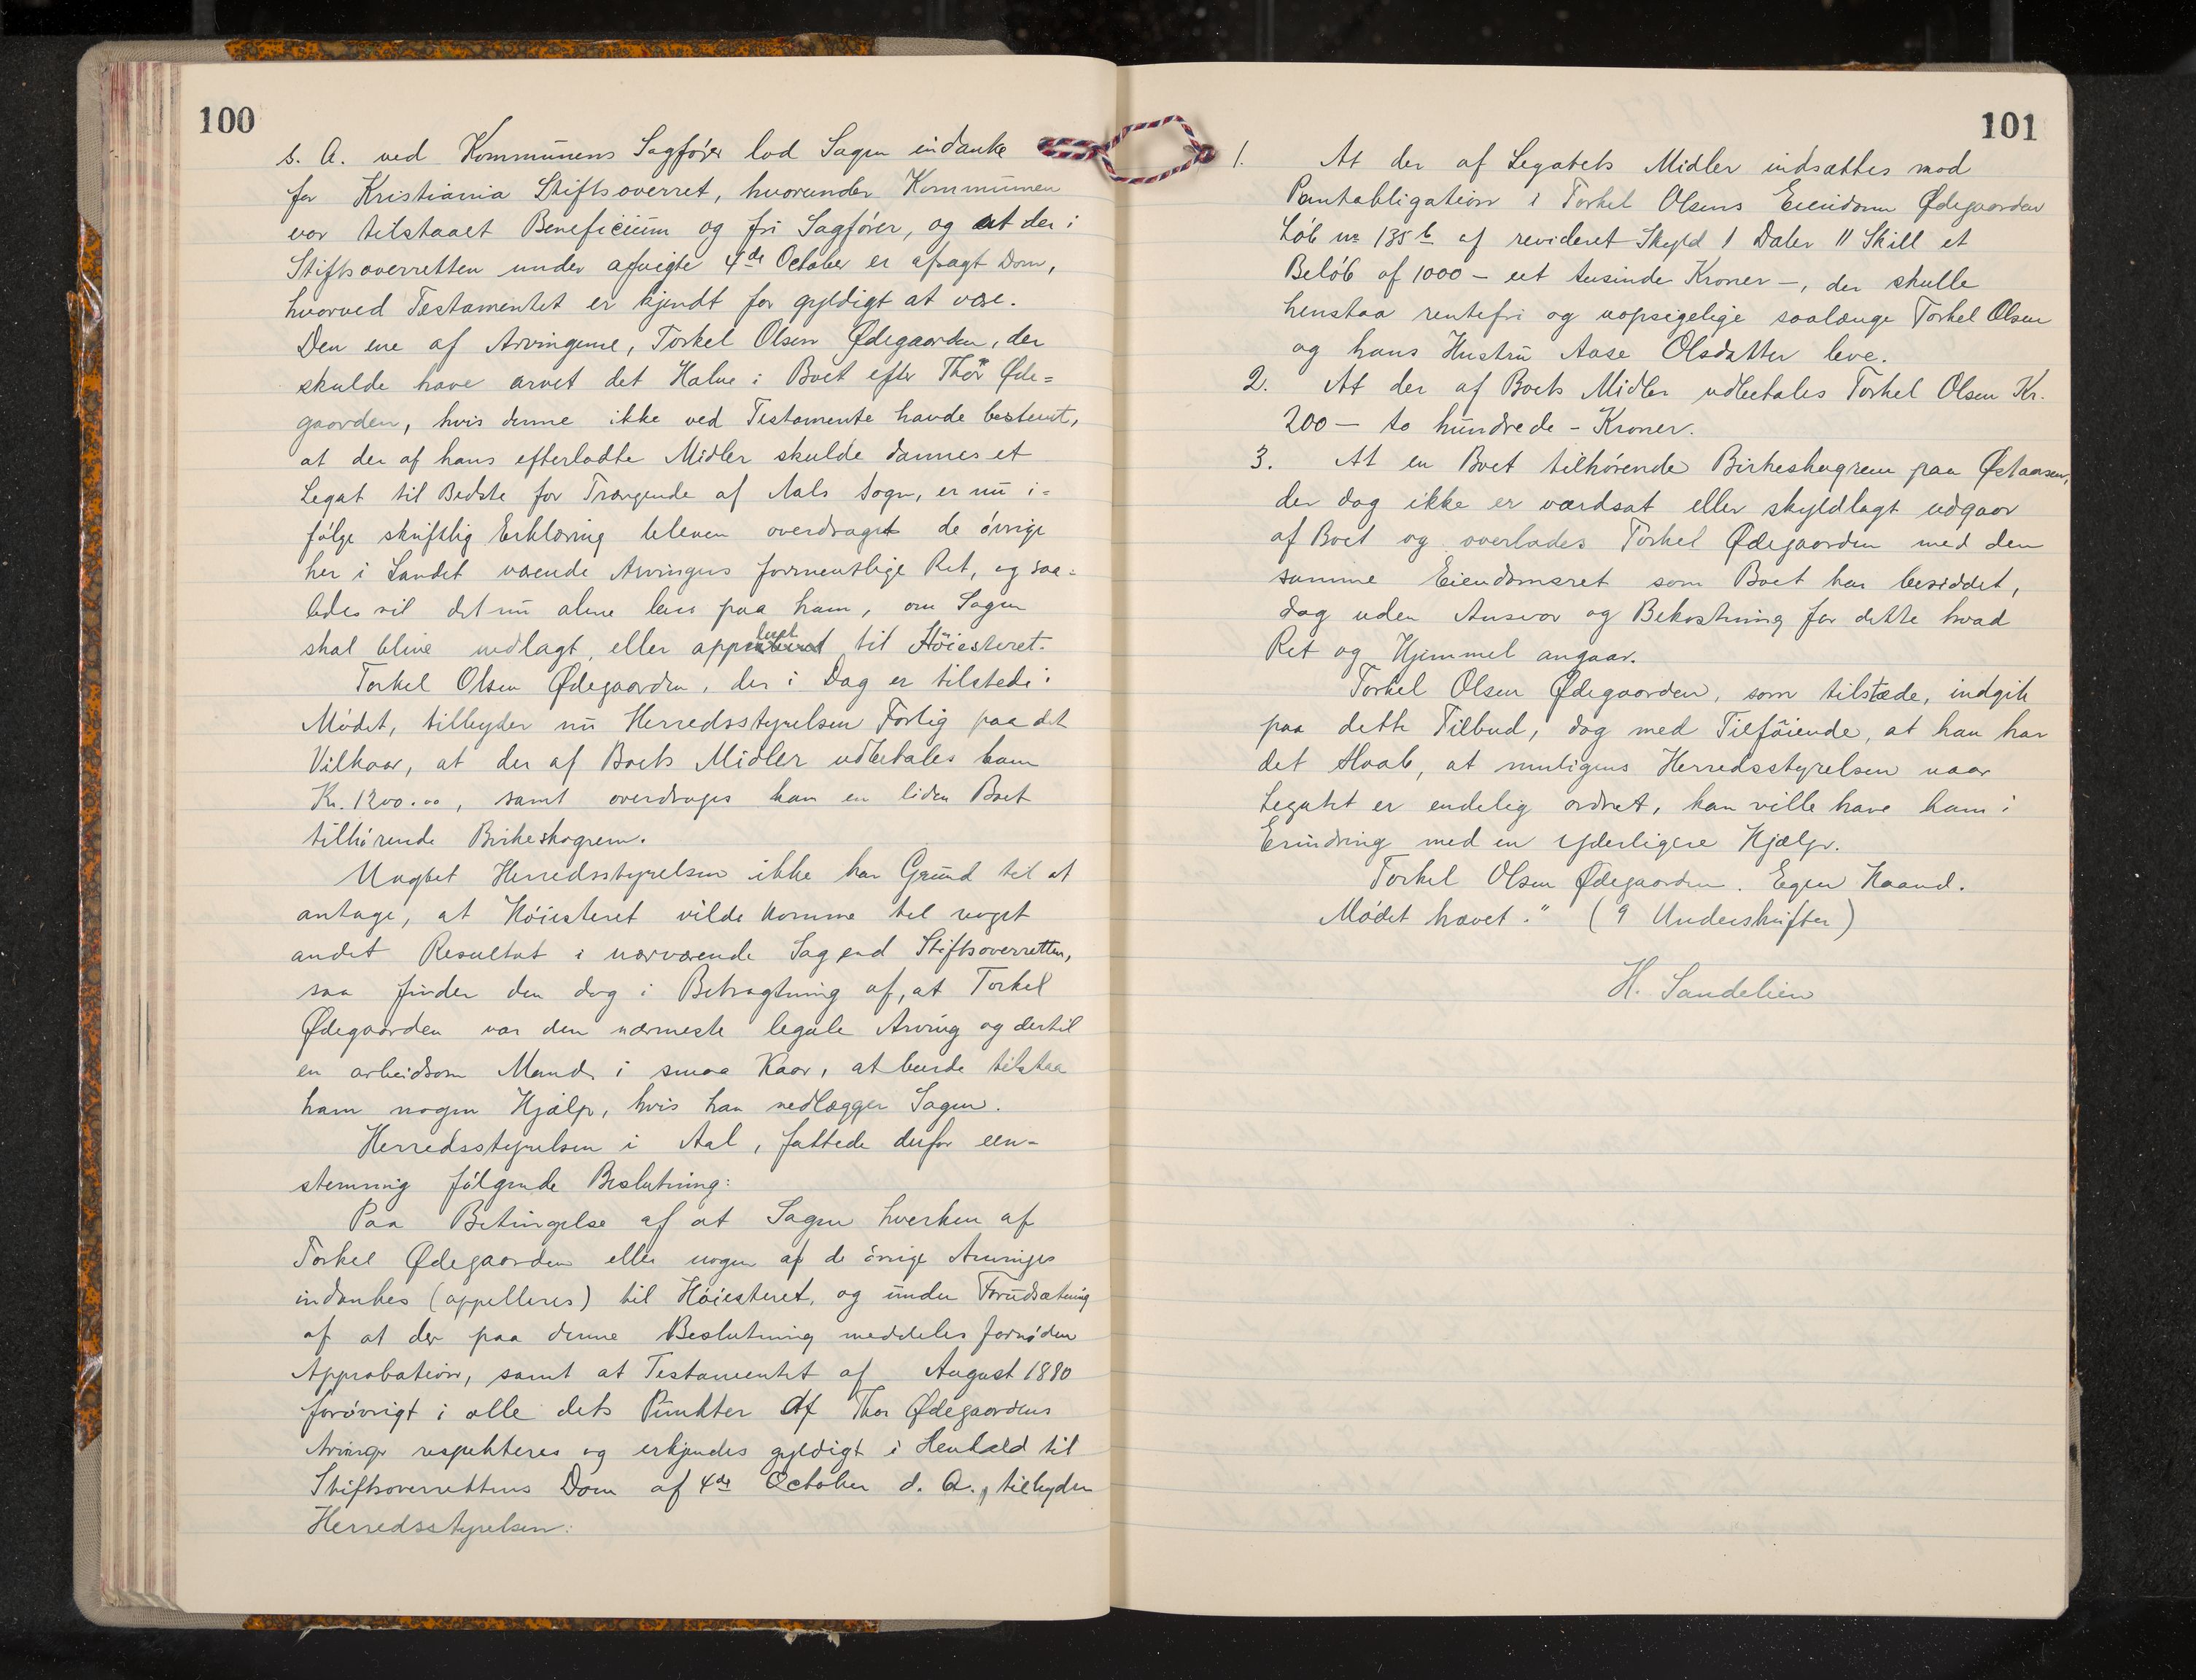 100
s. A. ved Kommunens Sagfører lod Sagen indanke
for Kristiania Stiftsoverret, hvorunder Kommunen
var tilstaaet Beneficium og fri Sagfører, og at der i
Stiftsoverretten under afvigte 4de October er afsagt Dom,
hvorved Testamentet er kjendt for gyldigt at være.
Den ene af Arvingerne, Torkel Olsen Ødegaarden, der
skulde have arvet det Halve i Boet efter Thor Øde=
gaarden, hvis denne ikke ved Testamente havde bestemt,
at der af hans efterladte Midler skulde dannes et
Legat til Bedste for Trængende af Aals Sogn, er nu i=
følge skriftlig Erklæring bleven overdraget de øvrige
her i Landet værende Arvingers formentlige Ret, og saa=
ledes vil det nu alene bero paa ham, om Sagen
skal blive nedlagt, eller appelleret til Höiesteret.
Torkel Olsen Ødegaarden, der i Dag er tilstede i
Mødet, tilbyder nu Herredsstyrelsen Forlig paa det
Vilkaar, at der af Boets Midler udbetales ham
Kr. 1200.00, samt overdrages ham en liden Boet
tilhørende Birkeskogrem.
Uagtet Herredsstyrelsen ikke har Grund til at
antage, at Høiesteret vilde komme til noget
andet Resultat i nærværende Sag end Stiftsoverretten,
saa finder den dog i Betragtning af, at Torkel
Ødegaarden var den nærmeste legale Arving og dertil
en arbeidsom Mand i smaa Kaar, at burde tilstaa
ham nogen Hjælp, hvis han nedlægger Sagen.
Herredsstyrelsen i Aal, fattede derfor een-
stemmig følgende Beslutning:
Paa Betingelse af at Sagen hverken af
Torkel Ødegaarden eller nogen af de øvrige Arvinger
indankes (appelleres) til Høiesteret, og under Forudsætning
af at der paa denne Beslutning meddeles fornøden
Approbation, samt at Testamentet af August 1880
forøvrigt i alle dets Punkter af Thor Ødegaardens
Arvinger respekteres og erkjendes gyldigt i Henhold til
Stiftsoverrettens Dom af 4de October d. A., tilbyder
Herredsstyrelsen:
101
1. At der af Legatets Midler indsættes mod
Pantobligation i Torkel Olsens Eiendom Ødegaarden
Løb no 135 b af revideret Skyld 1 Daler 11 Skill et
Beløb af 1000 – eet tusinde Kroner –, der skulle
henstaa rentefri og uopsigelige saalænge Torkel Olsen
og hans Hustru Aase Olsdatter leve.
2. At der af Boets Midler udbetales Torkel Olsen Kr.
200 – to hundrede – Kroner.
3. At en Boet tilhørende Birkeskogrem paa Østaasen,
der dog ikke er værdsat eller skyldlagt udgaar
af Boet og overlades Torkel Ødegaarden med den
samme Eiendomsret som Boet har besiddet,
dog uden Ansvar og Bekostning for dette hvad
Ret og Hjemmel angaar.
Torkel Olsen Ødegaarden, som tilstæde, indgik
paa dette Tilbud, dog med Tilføiende, at han har
det Haab, at muligens Herredsstyrelsen naar
Legatet er endelig ordnet, kan ville have ham i
Erindring med en yderligere Hjælp.
Torkel Olsen Ødegaarden. Egen Haand.
Mødet hævet." (9 Underskrifter)
H. Sandelien